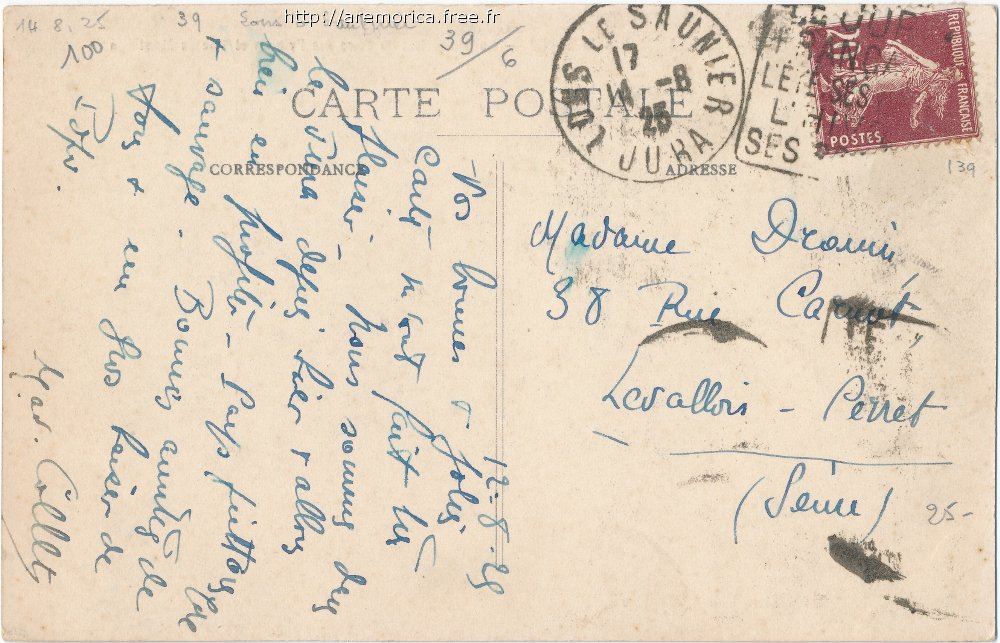 http://aremorica.free.fr
14 8.25
39
39/6
100
LONS LE SAUNIER
17
14 -8
25
JURA
REPUBLIQUE FRANÇAISE
POSTES
CARTE POSTALE
CORRESPONDANCE
ADRESSE
139
Madame Dromié
38 Rue Carnot
Levallois - Perret
(Seine)
25-
12-8-25
Vos bonnes & jolies
Cartes m'ont fait très
plaisir - Nous sommes dans
le Jura depuis hier & allons
bien en profiter - Pays pittoresque
& sauvage. Bonnes amitiés de
tous & un gros baiser de
Mad. Collet